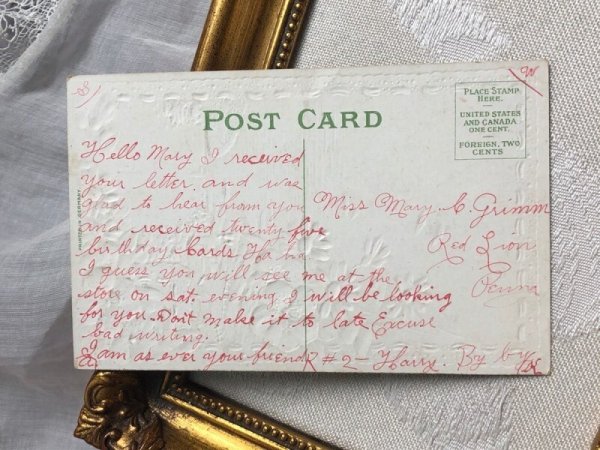 POST CARD
PLACE STAMP
HERE.
UNITED STATES
AND CANADA
ONE CENT.
FOREIGN, TWO
CENTS
PRINTED IN GERMANY
Hello Mary I received
your letter and was
glad to hear from you
and received twenty five
birthday Cards Ha ha
I guess you will see me at the
store on Sat. evening I will be looking
for you Don't make it to late Excuse
bad writing.
I am as ever your friend R #2 - Harry. By by
Miss Mary C. Grimm
Red Lion
Penna